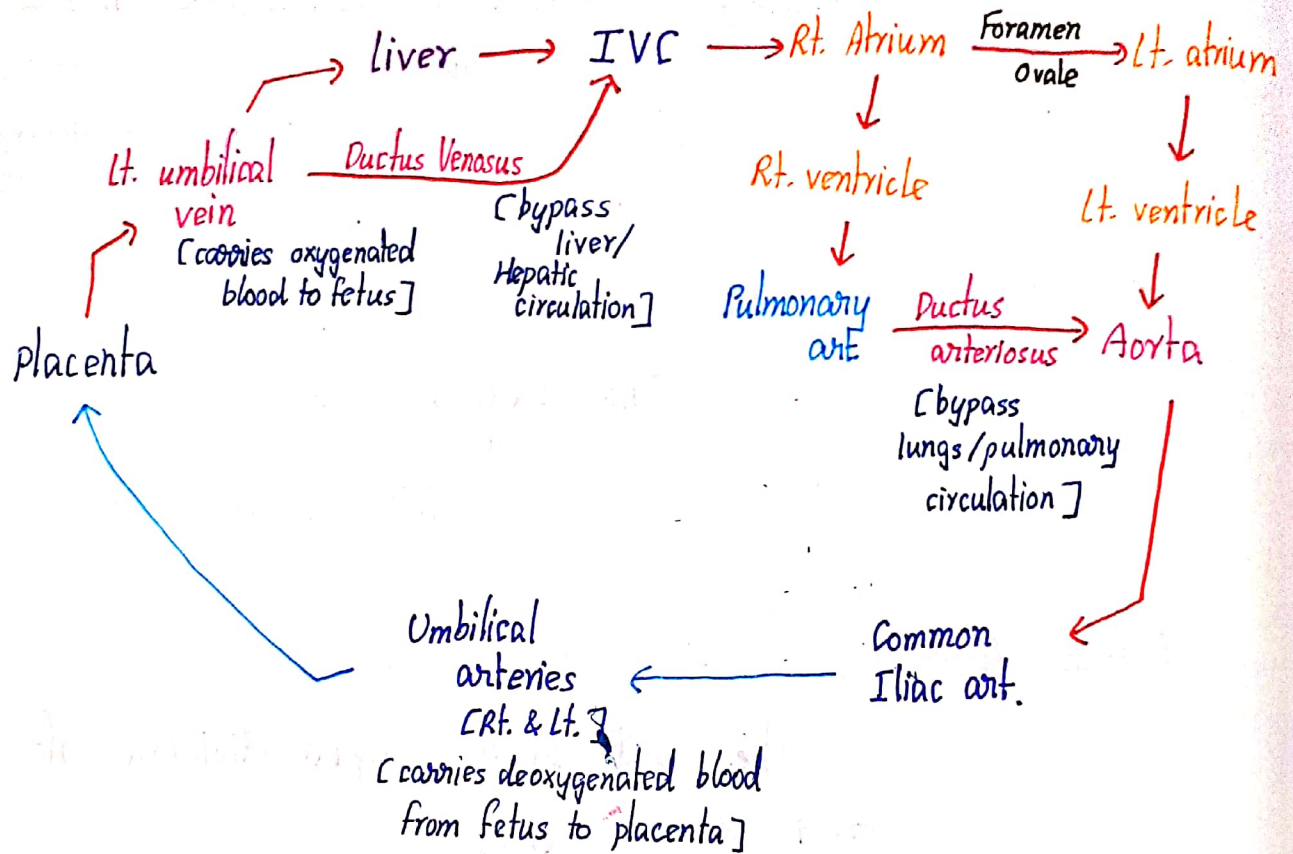 liver
IVC
Rt. Atrium
Foramen
Ovale
Lt. atrium
Lt. umbilical
vein
[carries oxygenated
blood to fetus]
Ductus Venosus
[bypass
liver/
Hepatic
circulation]
Rt. ventricle
Lt. ventricle
Pulmonary
art
Ductus
arteriosus
Aorta
[bypass
lungs/pulmonary
circulation]
Placenta
Umbilical
arteries
[Rt. & Lt.]
[carries deoxygenated blood
from fetus to placenta]
Common
Iliac art.